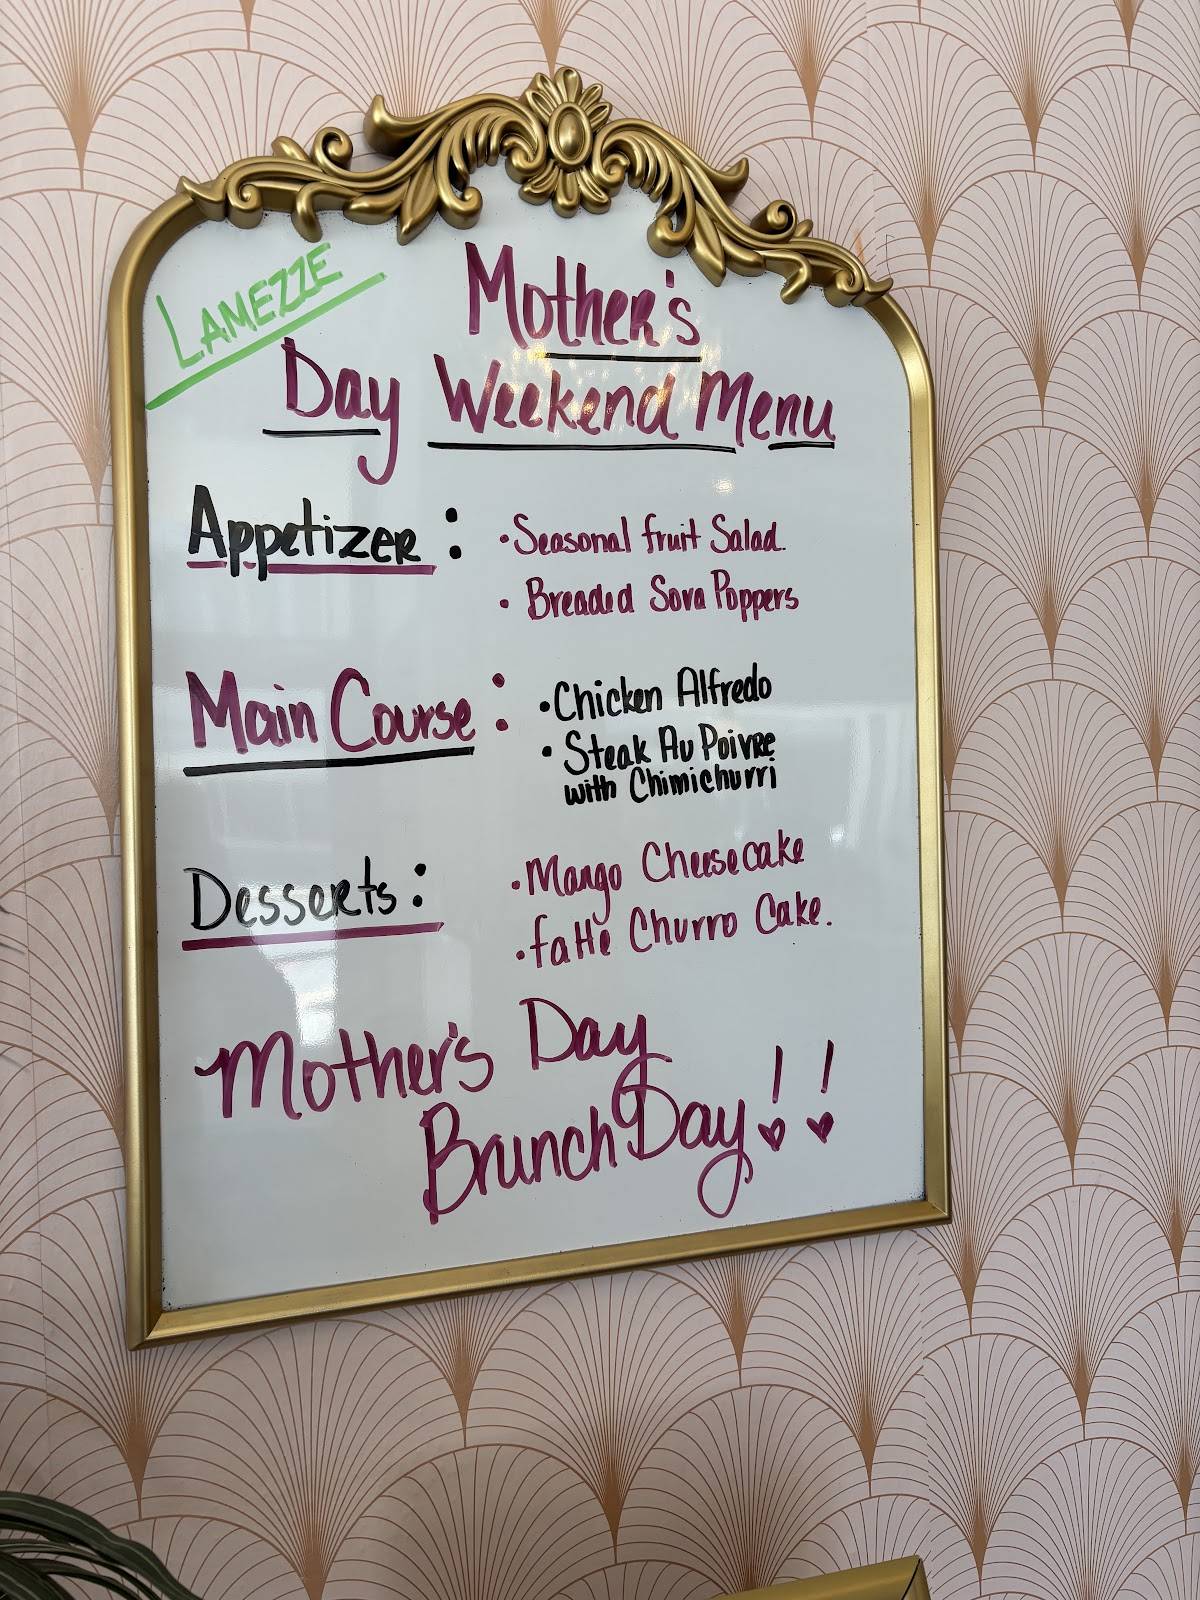 LAMEZZE
Mother's
Day Weekend Menu
Appetizer:
• Seasonal fruit Salad.
• Breaded Sova Poppers
Main Course:
• Chicken Alfredo
• Steak Au Poivre
with Chimichurri
Desserts:
• Mango Cheesecake
• Churro Cake.
Mother's Day
Brunch Day!!